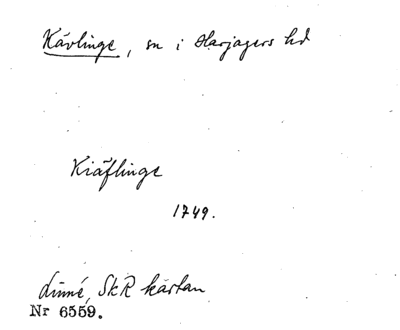 Kävlinge, sn i Harjagers hd
Kiäflinge
1749.
Linné, SkR kartan
Nr 6559.